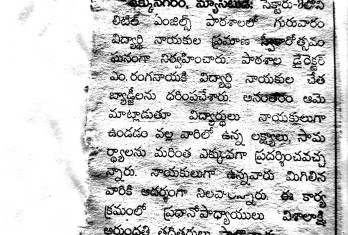 ఉక్కునగరం, న్యూస్‌టుడే: సెక్టారు-8లోని
లిటిల్ ఏంజెల్స్ పాఠశాలలో గురువారం
విద్యార్థి నాయకుల ప్రమాణ స్వీకారోత్సవం
ఘనంగా నిర్వహించారు. పాఠశాల డైరెక్టర్
ఎం.రంగనాయకి విద్యార్థి నాయకుల చేత
బ్యాడ్జీలను ధరింపచేశారు. అనంతరం ఆమె
మాట్లాడుతూ విద్యార్థులు నాయకులుగా
ఉండడం వల్ల వారిలో ఉన్న లక్ష్యాలు, సామ
ర్థ్యాలను మరింత ఎక్కువగా ప్రదర్శించవచ్చ
న్నారు. నాయకులుగా ఉన్నవారు మిగిలిన
వారికి ఆదర్శంగా నిలవాలన్నారు. ఈ కార్య
క్రమంలో ప్రధానోపాధ్యాయులు విశాలాక్షి,
అరుంధతి తదితరులు పాల్గొన్నారు.